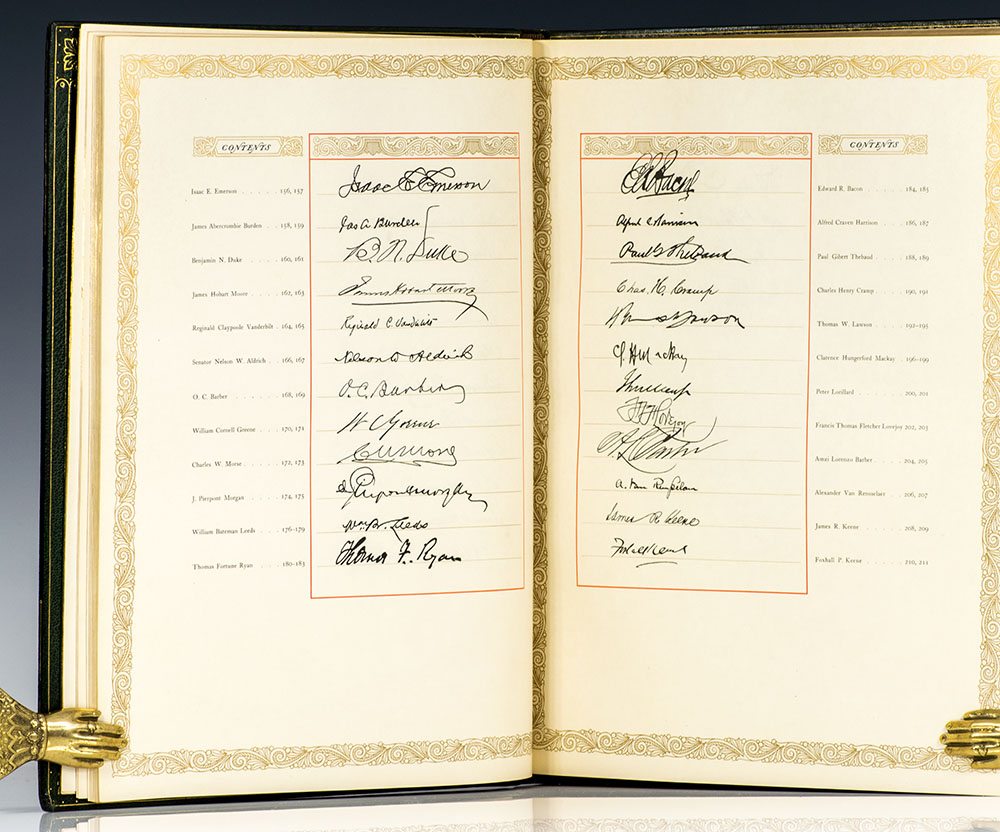 CONTENTS
Isaac E. Emerson . . . . . . 156, 157
James Abercrombie Burden . . 158, 159
Benjamin N. Duke . . . . . 160, 161
James Hobart Moore . . . . . 162, 163
Reginald Claypoole Vanderbilt . 164, 165
Senator Nelson W. Aldrich . . 166, 167
O. C. Barber . . . . . . . 168, 169
William Cornell Greene . . . . 170, 171
Charles W. Morse . . . . . 172, 173
J. Pierpont Morgan . . . . . 174, 175
William Bateman Leeds . . . . 176-179
Thomas Fortune Ryan . . . . 180-183
Isaac E Emerson
Jas A Burden
B. N. Duke
James Hobart Moore
Reginald C. Vanderbilt
Nelson W Aldrich
O. C. Barber
W C Greene
C W Morse
J. Pierpont Morgan
Wm B. Leeds
Thomas F. Ryan
E R Bacon
Alfred C Harrison
Paul G Thebaud
Chas. H. Cramp
Thomas W Lawson
C. H Mackay
F T F Lovejoy
A. L. Barber
A. Van Rensselaer
James R Keene
Foxhall Keene
CONTENTS
Edward R. Bacon . . . . . . 184, 185
Alfred Craven Harrison . . . . 186, 187
Paul Gibert Thebaud . . . . . 188, 189
Charles Henry Cramp . . . . 190, 191
Thomas W. Lawson . . . . . 192-195
Clarence Hungerford Mackay . 196-199
Peter Lorillard . . . . . . . 200, 201
Francis Thomas Fletcher Lovejoy 202, 203
Amzi Lorenzo Barber . . . . . 204, 205
Alexander Van Rensselaer . . . 206, 207
James R. Keene . . . . . . 208, 209
Foxhall P. Keene . . . . . . 210, 211